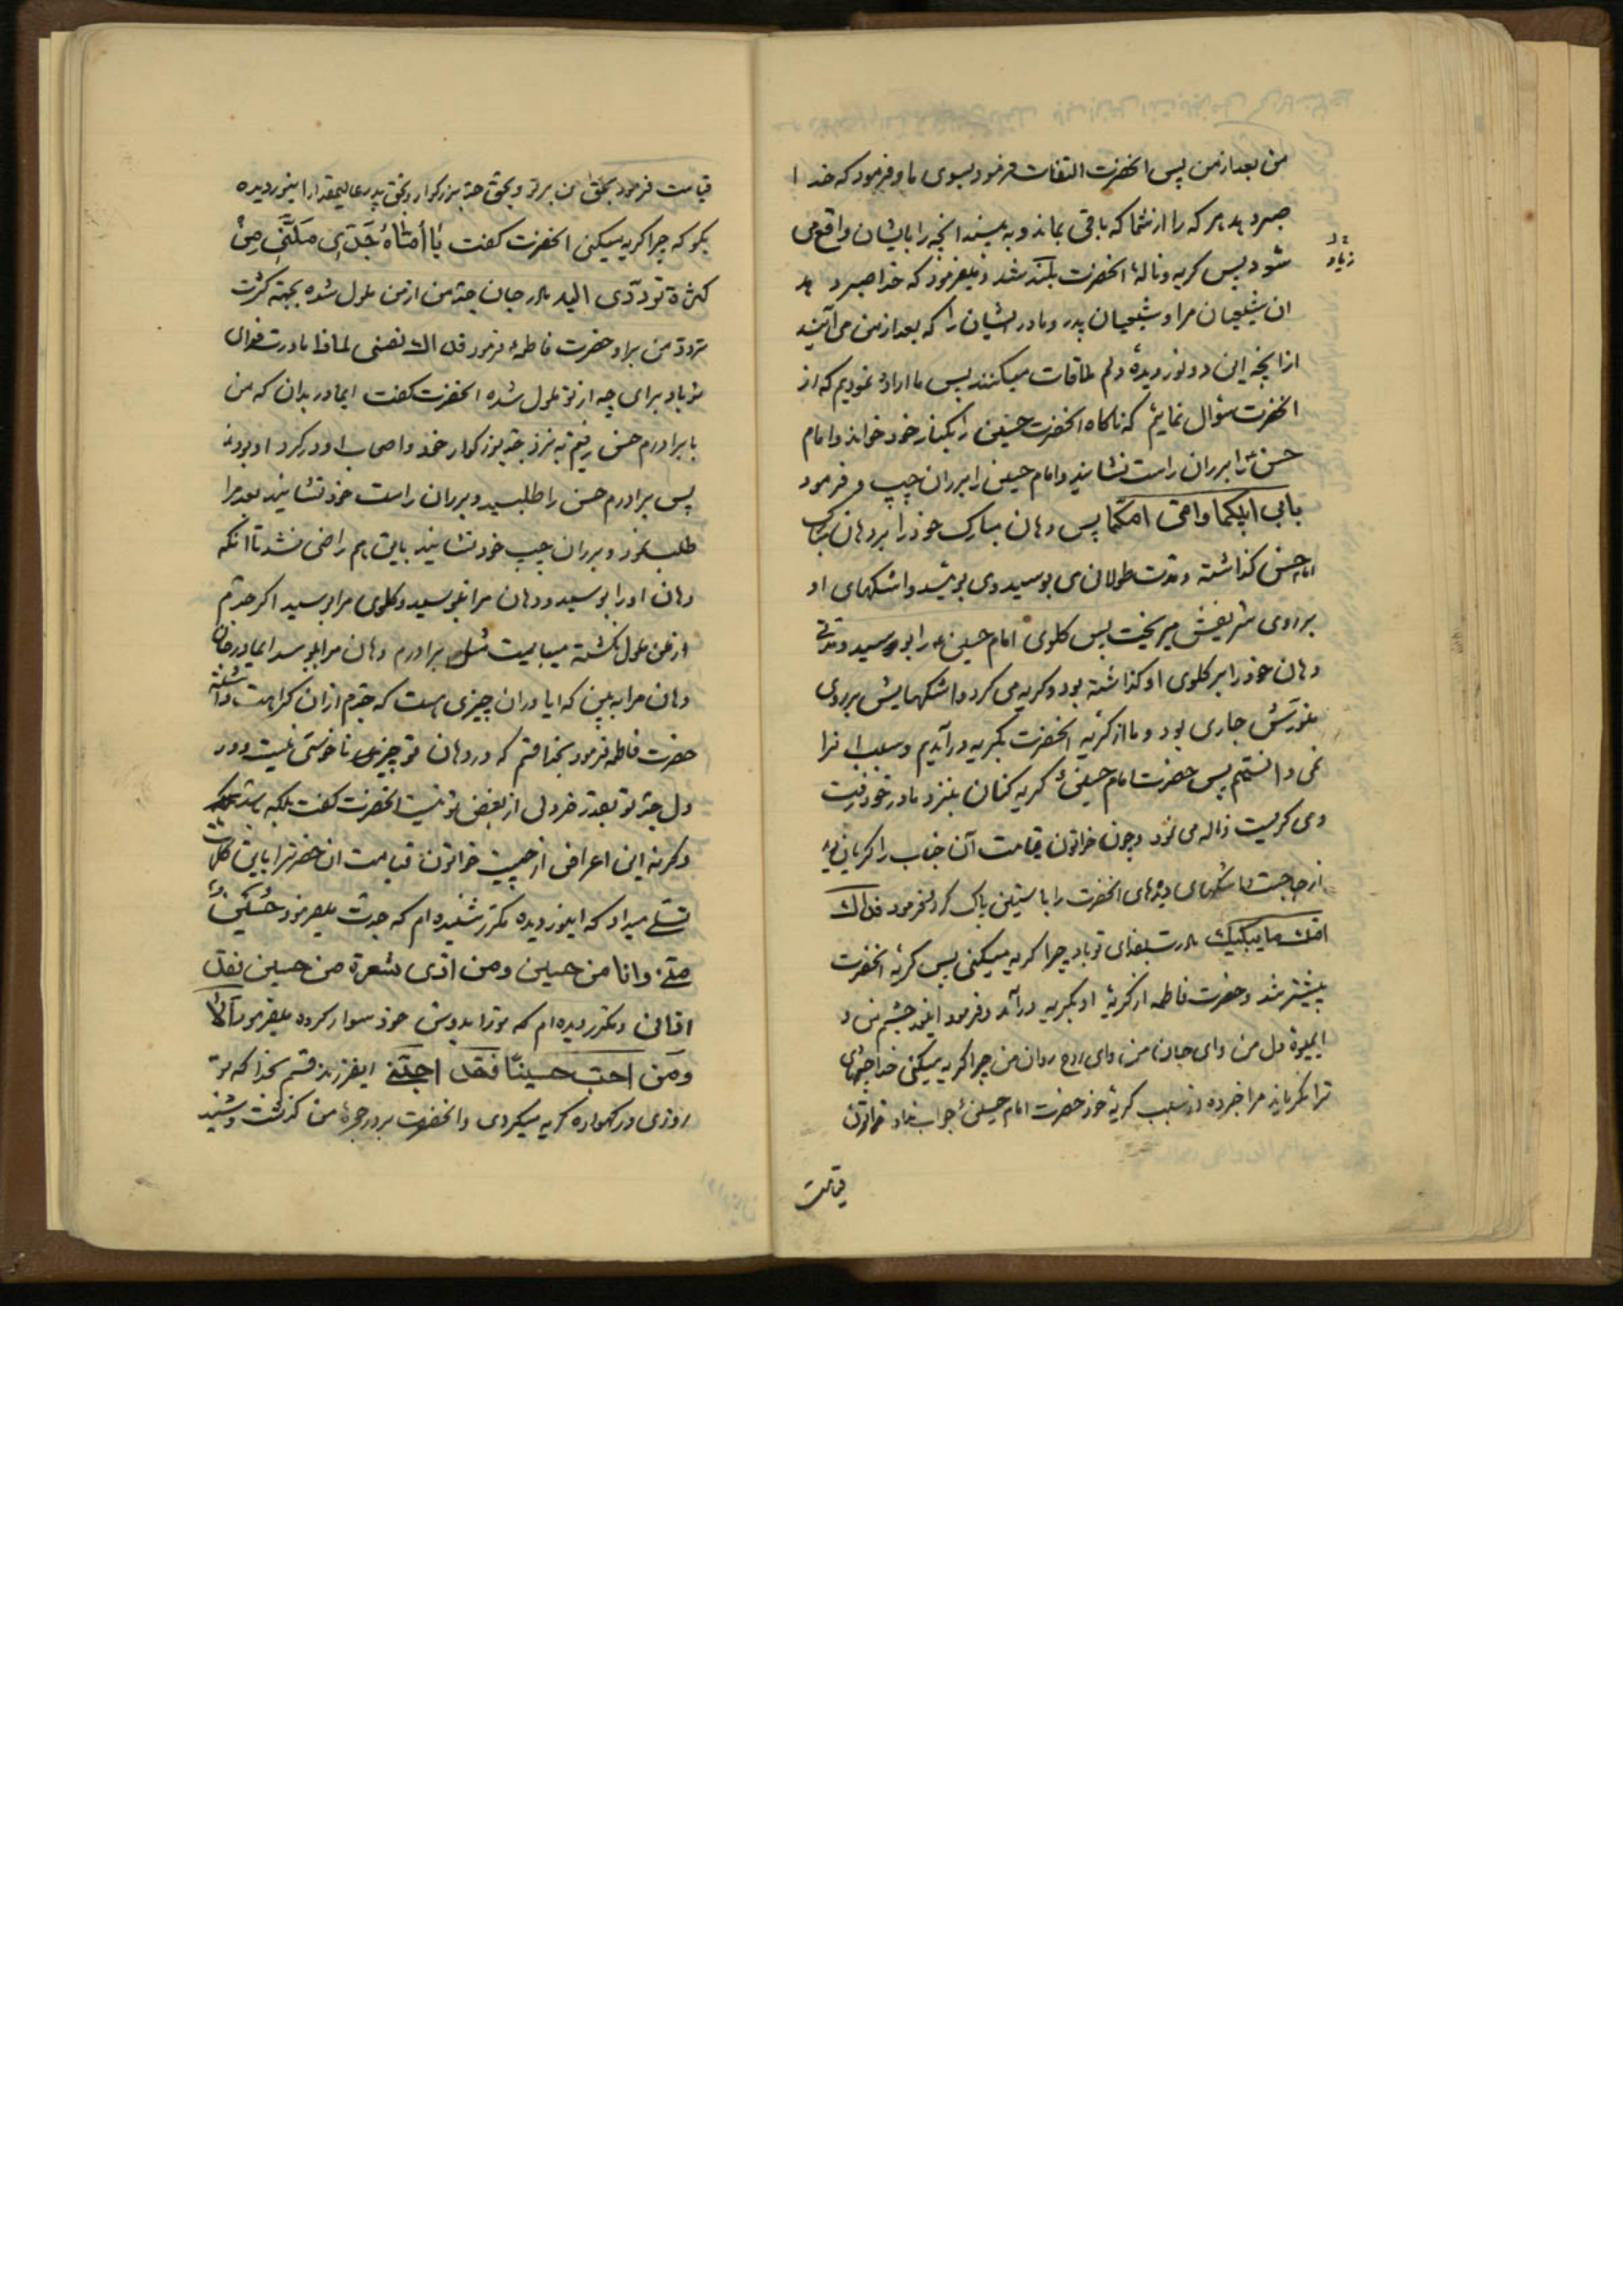 من بعد از من پس انحضرت التفات فرمود بسوی ما و فرمود که خدا
صبر دهد هر که را از شما که باقی بماند و به بیند انچه را بایشان واقع می
شود پس کریه و نالهٔ انحضرت بلند شد و میفرمود که خدا صبر دهد
زیاد
ان شیعیان مرا و شیعیان پدر و مادر ایشان را که بعد از من می آیند
از انچه این دو نور دیدهٔ دلم ملاقات میکنند پس ما اراده نمودیم که از
انحضرت سؤال نمائیم که ناکاه انحضرت حسنین را بکنار خود خواند و امام
حسن را بر ران راست نشانید و امام حسین را بر ران چپ و فرمود
بابی ابیکما و امی امکما پس دهان مبارک خود را بر دهان مبارک
امام حسن کذاشته و مدت طولانی می بوسید و می بوئید و اشکهای او
بر روی شریفش میریخت پس کلوی امام حسین را بوسید و مدتی
دهان خود را بر کلوی او کذاشته بود و کریه می کرد و اشکهایش بر روی
منورش جاری بود و ما از کریهٔ انحضرت بکریه در آمدیم و سبب انرا
نمی دانستیم پس حضرت امام حسین کریه کنان بنزد مادر خود رفت
و می کریست و ناله می نمود و چون خاتون قیامت آن جناب را کریان دید
از جا جست و اشکهای دیدهای انحضرت را با ستین پاک کرد و فرمود فداک
امک ما یبکیک مادرت بفدای تو باد چرا کریه میکنی پس کریهٔ انحضرت
بیشتر شد و حضرت فاطمه از کریهٔ او بکریه در آمد و فرمود ای نور چشم من و
ای میوهٔ دل من و ای جان من و ای روح روان من چرا کریه میکنی خدا چشمهای
ترا نکریاند مرا خبر ده از سبب کریهٔ خود حضرت امام حسین جواب نداد خاتون
قیامت
قیامت فرمود بحق من بر تو و بحق جد بزرکوار و بحق پدر عالیمقدار اینور دیده
بکو که چرا کریه میکنی انحضرت کفت یا أمّاهُ جَدّی مَلَّنی مِن
کثرة تردّدی الیه مادر جان جد من از من ملول شده بجهة کثرت
تردد من بر او حضرت فاطمه فرمود فداک نفسی لماذا مادرت فدای
تو باد برای چه از تو ملول شده انحضرت کفت ایمادر بدان که من
با برادرم حسن رفتیم به نزد جد بزرکوار خود و اصحاب او در کرد او بودند
پس برادرم حسن را طلبید و بر ران راست خود نشانید بعد مرا
طلب نمود و بر ران چپ خود نشانید باین هم راضی نشد تا انکه
دهان او را بوسید و دهان مرا نبوسید و کلوی مرا بوسید اکر جدم
از من ملول نکشته میبایست مثل برادرم دهان مرا ببوسد ایمادر جان
دهان مرا به بین که ایا در ان چیزی هست که جدم از ان کراهت داشته
حضرت فاطمه فرمود بخدا قسم که در دهان تو چیزی ناخوشی نیست و در
دل جد تو بقدر خردلی از بغض تو نیست انحضرت کفت بلکه باشد
و کرنه این اعراض از چیست خواتون قیامت ان حضرت را باین کلمات
تسلی میداد که اینور دیده مکرر شنیده ام که جدت میفرمود حُسَینٌ
منّی و انا من حسین و من اذی شعرة من حسین فقد
اذانی و مکرر دیده ام که تو را بدوش خود سوار کرده میفرمود الا
و مَن احبّ حسینًا فَقَد احبّنی ایفرزند قسم بخدا که تو
روزی در کهواره کریه میکردی و انحضرت بر در حجرهٔ من کذشت و شنید